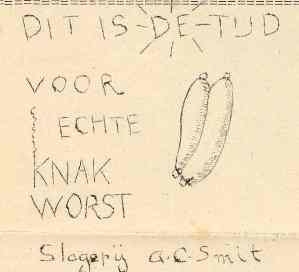 DIT IS DE TIJD
VOOR
ECHTE
KNAK
WORST
Slagerij A.C. Smit